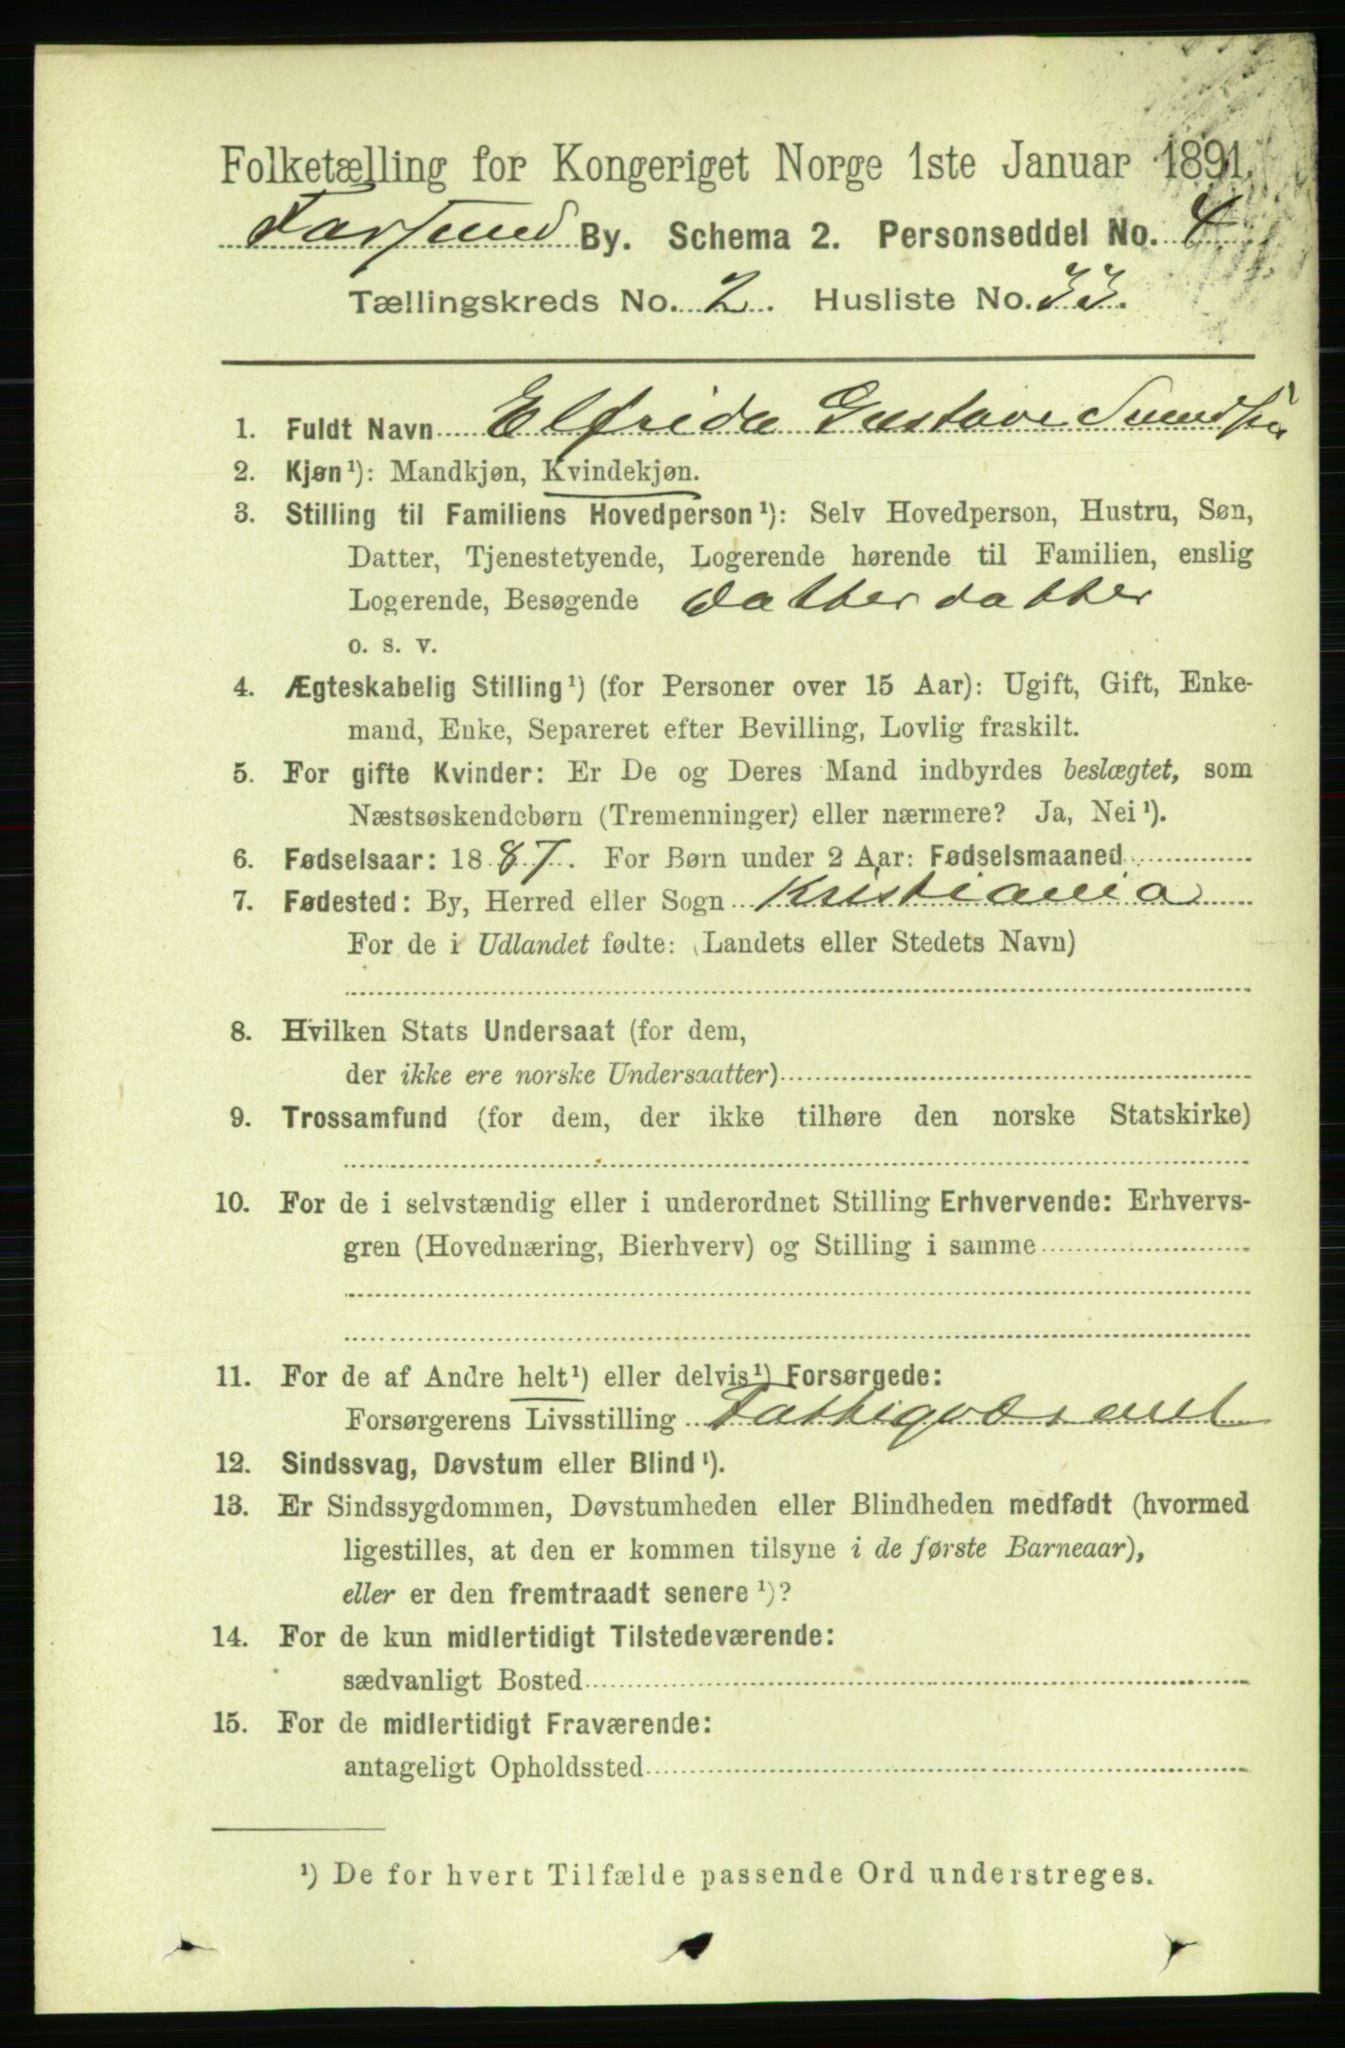 Folketælling for Kongeriget Norge 1ste Januar 1891.
Farsund By. Schema 2. Personseddel No. 4
Tællingskreds No. 2. Husliste No. 33.
1. Fuldt Navn Elfrida Gustava Svendsen
2. Kjøn¹): Mandkjøn, Kvindekjøn.
3. Stilling til Familiens Hovedperson¹): Selv Hovedperson, Hustru, Søn,
Datter, Tjenestetyende, Logerende hørende til Familien, enslig
Logerende, Besøgende datterdatter
o. s. v.
4. Ægteskabelig Stilling¹) (for Personer over 15 Aar): Ugift, Gift, Enke-
mand, Enke, Separeret efter Bevilling, Lovlig fraskilt.
5. For gifte Kvinder: Er De og Deres Mand indbyrdes beslægtet, som
Næstsøskendebørn (Tremenninger) eller nærmere? Ja, Nei¹).
6. Fødselsaar: 1887. For Børn under 2 Aar: Fødselsmaaned
7. Fødested: By, Herred eller Sogn Kristiania
For de i Udlandet fødte: (Landets eller Stedets Navn)
8. Hvilken Stats Undersaat (for dem,
der ikke ere norske Undersaatter)
9. Trossamfund (for dem, der ikke tilhøre den norske Statskirke)
10. For de i selvstændig eller i underordnet Stilling Erhvervende: Erhvervs-
gren (Hovednæring, Bierhverv) og Stilling i samme
11. For de af Andre helt¹) eller delvis¹) Forsørgede:
Forsørgerens Livsstilling Fattigvæsenet
12. Sindssvag, Døvstum eller Blind¹).
13. Er Sindssygdommen, Døvstumheden eller Blindheden medfødt (hvormed
ligestilles, at den er kommen tilsyne i de første Barneaar),
eller er den fremtraadt senere¹)?
14. For de kun midlertidigt Tilstedeværende:
sædvanligt Bosted
15. For de midlertidigt Fraværende:
antageligt Opholdssted
¹) De for hvert Tilfælde passende Ord understreges.